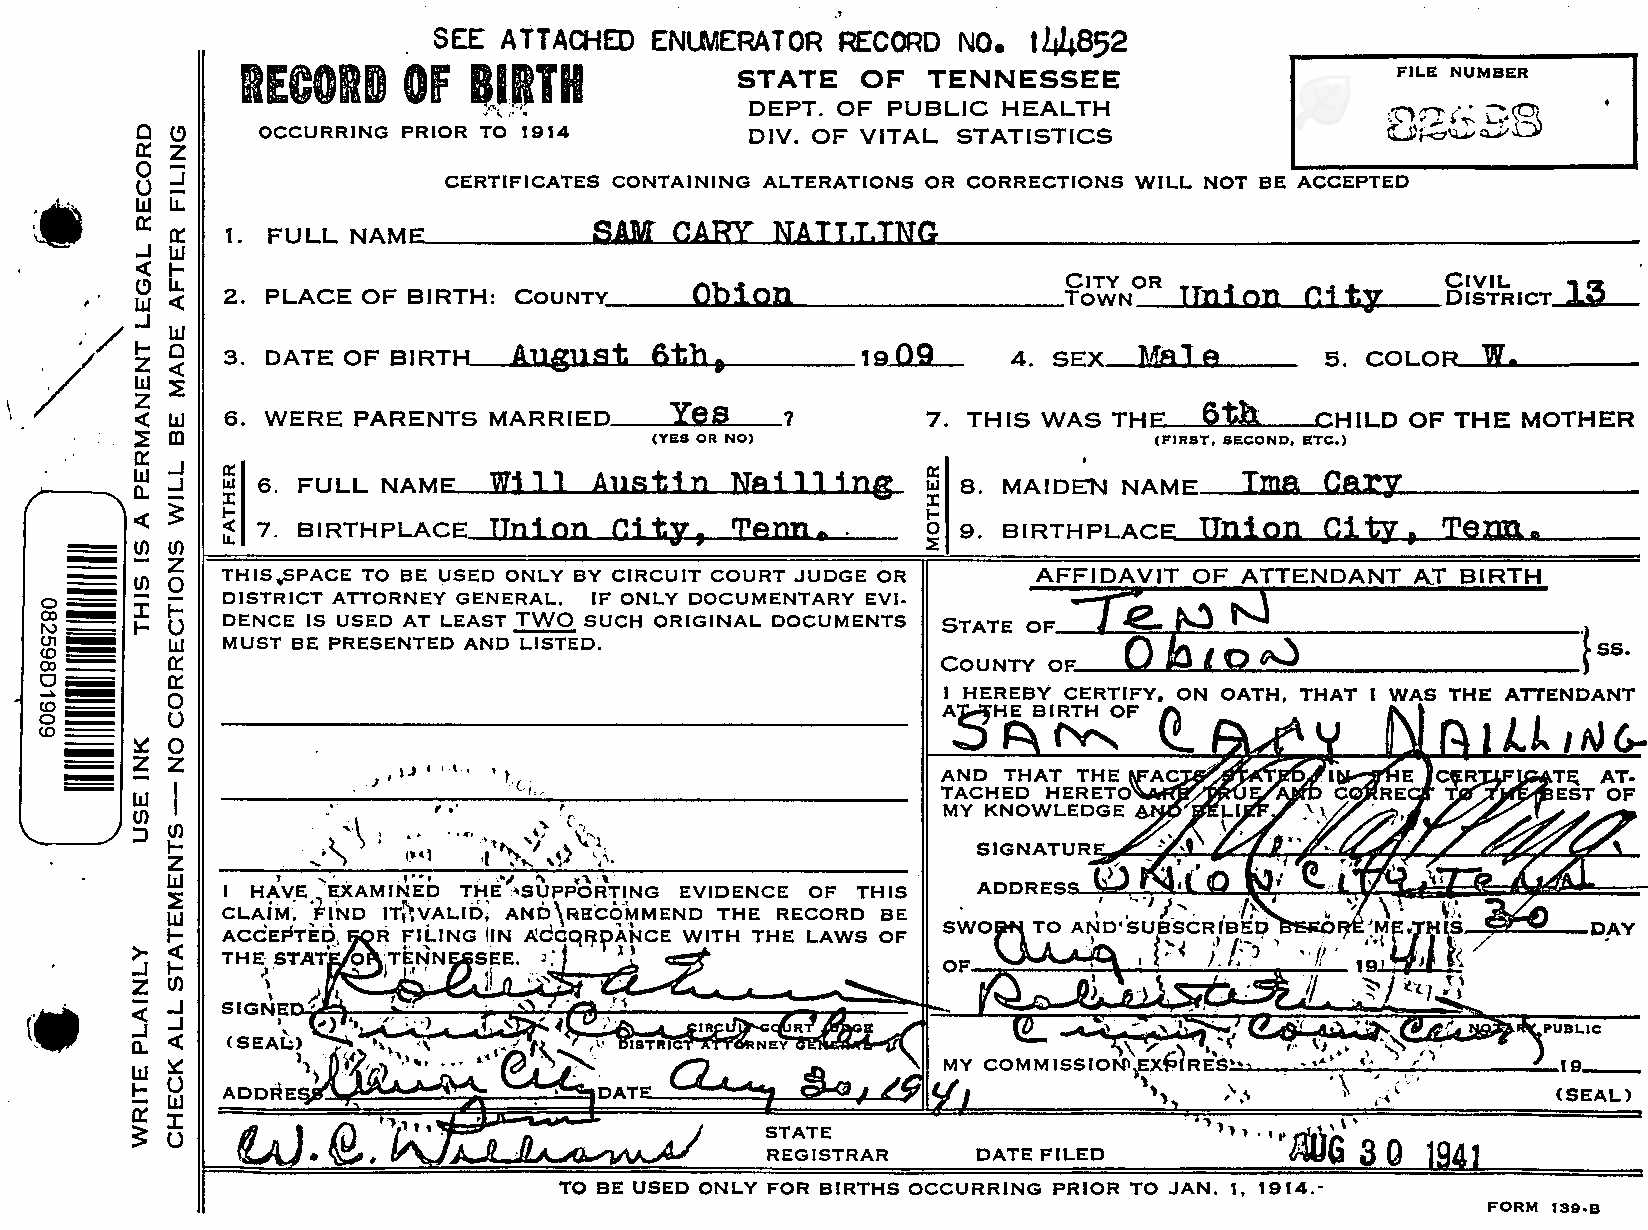 SEE ATTACHED ENUMERATOR RECORD NO. 144852
RECORD OF BIRTH
OCCURRING PRIOR TO 1914
STATE OF TENNESSEE
DEPT. OF PUBLIC HEALTH
DIV. OF VITAL STATISTICS
FILE NUMBER
CERTIFICATES CONTAINING ALTERATIONS OR CORRECTIONS WILL NOT BE ACCEPTED
1. FULL NAME SAM CARY NAILLING
2. PLACE OF BIRTH: COUNTY Obion CITY OR TOWN Union City CIVIL DISTRICT 13
3. DATE OF BIRTH August 6th, 1909 4. SEX Male 5. COLOR W.
6. WERE PARENTS MARRIED Yes ? 7. THIS WAS THE 6th CHILD OF THE MOTHER
(YES OR NO) (FIRST, SECOND, ETC.)
FATHER
6. FULL NAME Will Austin Nailling
7. BIRTHPLACE Union City, Tenn.
MOTHER
8. MAIDEN NAME Ima Cary
9. BIRTHPLACE Union City, Tenn.
THIS SPACE TO BE USED ONLY BY CIRCUIT COURT JUDGE OR
DISTRICT ATTORNEY GENERAL. IF ONLY DOCUMENTARY EVI-
DENCE IS USED AT LEAST TWO SUCH ORIGINAL DOCUMENTS
MUST BE PRESENTED AND LISTED.
I HAVE EXAMINED THE SUPPORTING EVIDENCE OF THIS
CLAIM, FIND IT VALID, AND RECOMMEND THE RECORD BE
ACCEPTED FOR FILING IN ACCORDANCE WITH THE LAWS OF
THE STATE OF TENNESSEE.
SIGNED
(SEAL) CIRCUIT COURT JUDGE
DISTRICT ATTORNEY GENERAL
ADDRESS Union City DATE Aug 30, 1941
Tenn
AFFIDAVIT OF ATTENDANT AT BIRTH
STATE OF TENN
COUNTY OF Obion SS.
I HEREBY CERTIFY, ON OATH, THAT I WAS THE ATTENDANT
AT THE BIRTH OF
SAM CARY NAILLING
AND THAT THE FACTS STATED IN THE CERTIFICATE AT-
TACHED HERETO ARE TRUE AND CORRECT TO THE BEST OF
MY KNOWLEDGE AND BELIEF.
SIGNATURE
ADDRESS UNION City, Tenn
SWORN TO AND SUBSCRIBED BEFORE ME THIS 30 DAY
OF Aug 1941
NOTARY PUBLIC
MY COMMISSION EXPIRES 19
(SEAL)
W. C. Williams STATE REGISTRAR DATE FILED AUG 30 1941
TO BE USED ONLY FOR BIRTHS OCCURRING PRIOR TO JAN. 1, 1914.-
FORM 139-B
WRITE PLAINLY USE INK THIS IS A PERMANENT LEGAL RECORD
CHECK ALL STATEMENTS — NO CORRECTIONS WILL BE MADE AFTER FILING
082598D1909